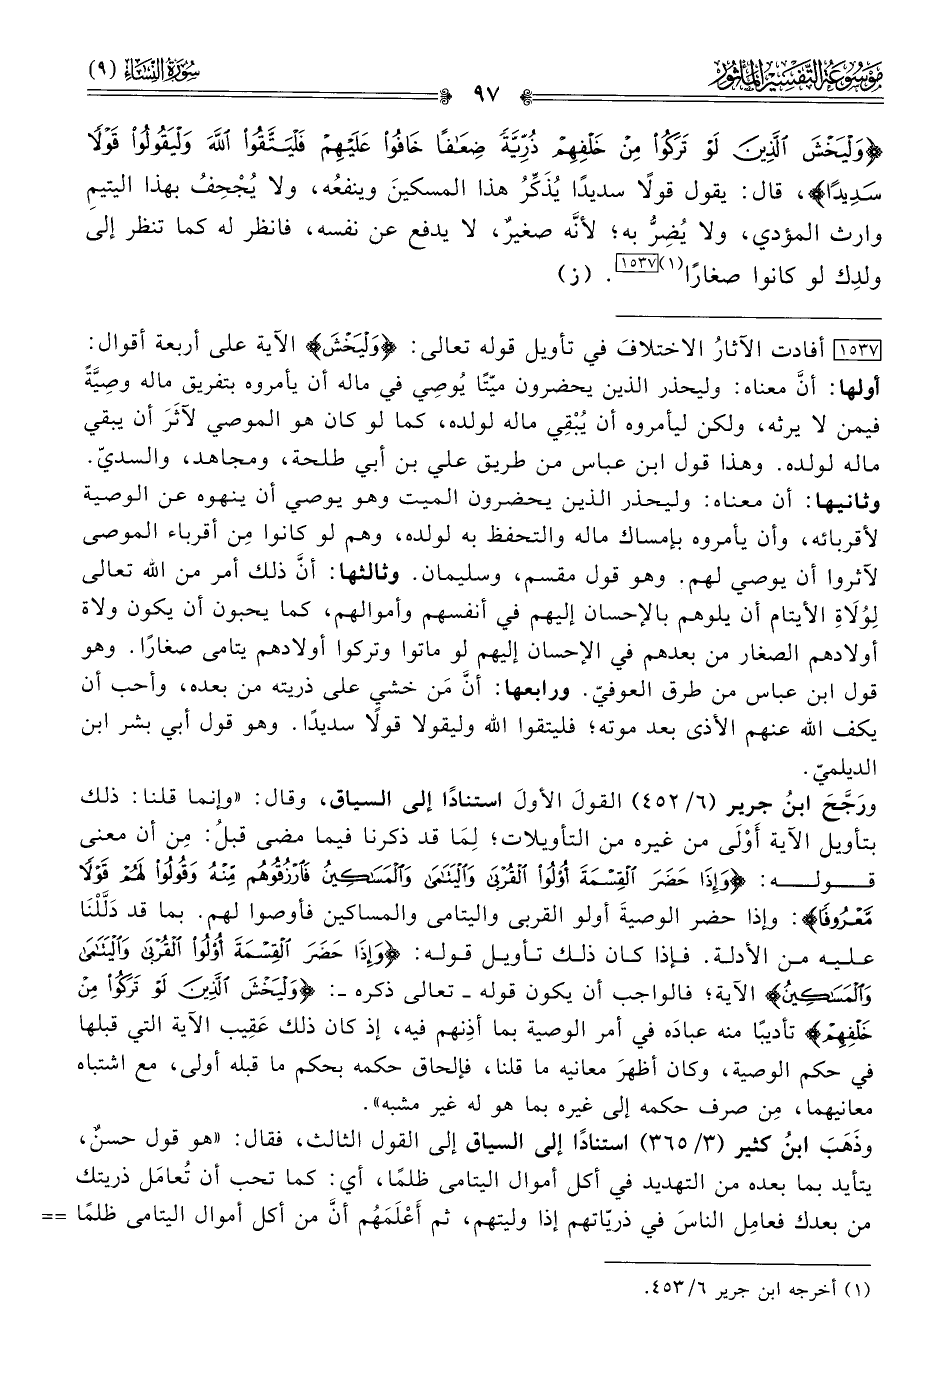 مَوْسُوعَة التَّفْسِيْر المَأْثُوْر
٩٧
سُورَةُ النِّسَاءِ (٩)
﴿وَلْيَخْشَ الَّذِينَ لَوْ تَرَكُوا مِنْ خَلْفِهِمْ ذُرِّيَّةً ضِعَافًا خَافُوا عَلَيْهِمْ فَلْيَتَّقُوا اللَّهَ وَلْيَقُولُوا قَوْلًا
سَدِيدًا﴾، قال: يقول قولًا سديدًا يُذَكِّرُ هذا المسكينَ وينفعُه، ولا يُجْحِفُ بهذا اليتيمِ
وارث المؤدي، ولا يُضِرُّ به؛ لأنَّه صغيرٌ، لا يدفع عن نفسه، فانظر له كما تنظر إلى
ولدِك لو كانوا صغارًا(١)[١٥٣٧]. (ز)
[١٥٣٧] أفادت الآثارُ الاختلافَ في تأويل قوله تعالى: ﴿وَلْيَخْشَ﴾ الآية على أربعة أقوال:
أولها: أنَّ معناه: وليحذر الذين يحضرون ميّتًا يُوصِي في ماله أن يأمروه بتفريق ماله وصِيَّةً
فيمن لا يرثه، ولكن ليأمروه أن يُبْقِي ماله لولده، كما لو كان هو الموصي لآثَرَ أن يبقي
ماله لولده. وهذا قول ابن عباس من طريق علي بن أبي طلحة، ومجاهد، والسديّ.
وثانيها: أن معناه: وليحذر الذين يحضرون الميت وهو يوصي أن ينهوه عن الوصية
لأقربائه، وأن يأمروه بإمساك ماله والتحفظ به لولده، وهم لو كانوا مِن أقرباء الموصى
لآثروا أن يوصي لهم. وهو قول مقسم، وسليمان. وثالثها: أنَّ ذلك أمر من الله تعالى
لِوُلَاةِ الأيتام أن يلوهم بالإحسان إليهم في أنفسهم وأموالهم، كما يحبون أن يكون ولاة
أولادهم الصغار من بعدهم في الإحسان إليهم لو ماتوا وتركوا أولادهم يتامى صغارًا. وهو
قول ابن عباس من طرق العوفيّ. ورابعها: أنَّ مَن خشي على ذريته من بعده، وأحب أن
يكف الله عنهم الأذى بعد موته؛ فليتقوا الله وليقولا قولًا سديدًا. وهو قول أبي بشر ابن
الديلميّ.
ورَجَّحَ ابنُ جرير (٦/ ٤٥٢) القولَ الأولَ استنادًا إلى السياق، وقال: «وإنما قلنا: ذلك
بتأويل الآية أَوْلَى من غيره من التأويلات؛ لِمَا قد ذكرنا فيما مضى قبلُ: مِن أن معنى
قوله: ﴿وَإِذَا حَضَرَ الْقِسْمَةَ أُوْلُوا الْقُرْبَى وَالْيَتَامَى وَالْمَسَاكِينُ فَارْزُقُوهُم مِّنْهُ وَقُولُوا لَهُمْ قَوْلًا
مَّعْرُوفًا﴾: وإذا حضر الوصيةَ أولو القربى واليتامى والمساكين فأوصوا لهم. بما قد دَلَّلْنَا
عليه من الأدلة. فإذا كان ذلك تأويل قوله: ﴿وَإِذَا حَضَرَ الْقِسْمَةَ أُوْلُوا الْقُرْبَى وَالْيَتَامَى
وَالْمَسَاكِينُ﴾ الآية؛ فالواجب أن يكون قوله ـ تعالى ذكره ـ: ﴿وَلْيَخْشَ الَّذِينَ لَوْ تَرَكُوا مِنْ
خَلْفِهِمْ﴾ تأديبًا منه عبادَه في أمر الوصية بما أذِنهم فيه، إذ كان ذلك عَقِيب الآية التي قبلها
في حكم الوصية، وكان أظهرَ معانيه ما قلنا، فإلحاق حكمه بحكم ما قبله أولى، مع اشتباه
معانيهما، مِن صرف حكمه إلى غيره بما هو له غير مشبه».
وذَهَبَ ابنُ كثير (٣/ ٣٦٥) استنادًا إلى السياق إلى القول الثالث، فقال: «هو قول حسنٌ،
يتأيد بما بعده من التهديد في أكل أموال اليتامى ظلمًا، أي: كما تحب أن تُعامَل ذريتك
من بعدك فعامِل الناسَ في ذريّاتهم إذا وليتهم، ثم أَعْلَمَهُم أنَّ من أكل أموال اليتامى ظلمًا ==
(١) أخرجه ابن جرير ٦/ ٤٥٣.